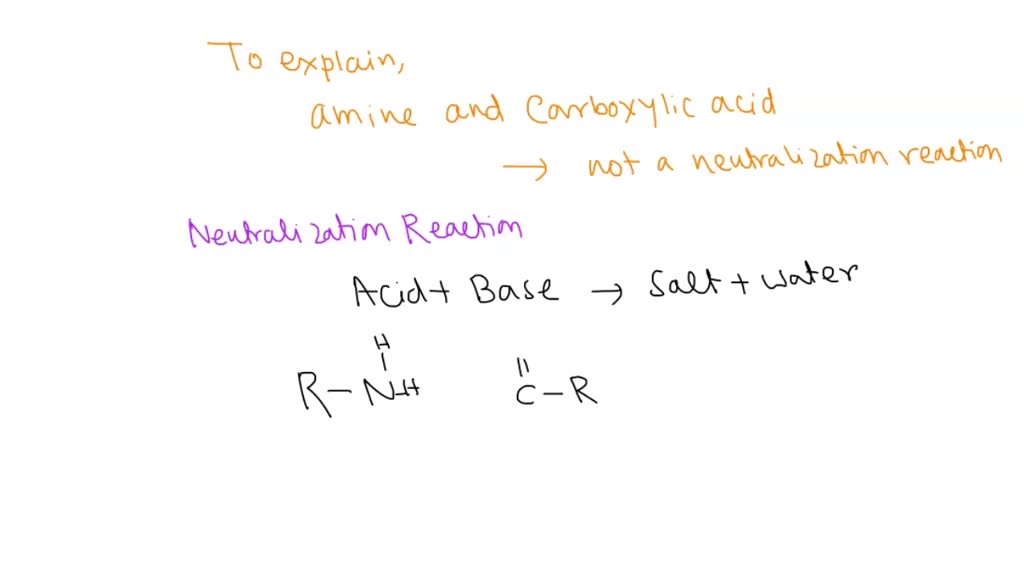 To explain,
amine and Carboxylic acid
→ not a neutralization reaction
Neutralization Reaction
Acid + Base → Salt + water
H
R-N-H C-R